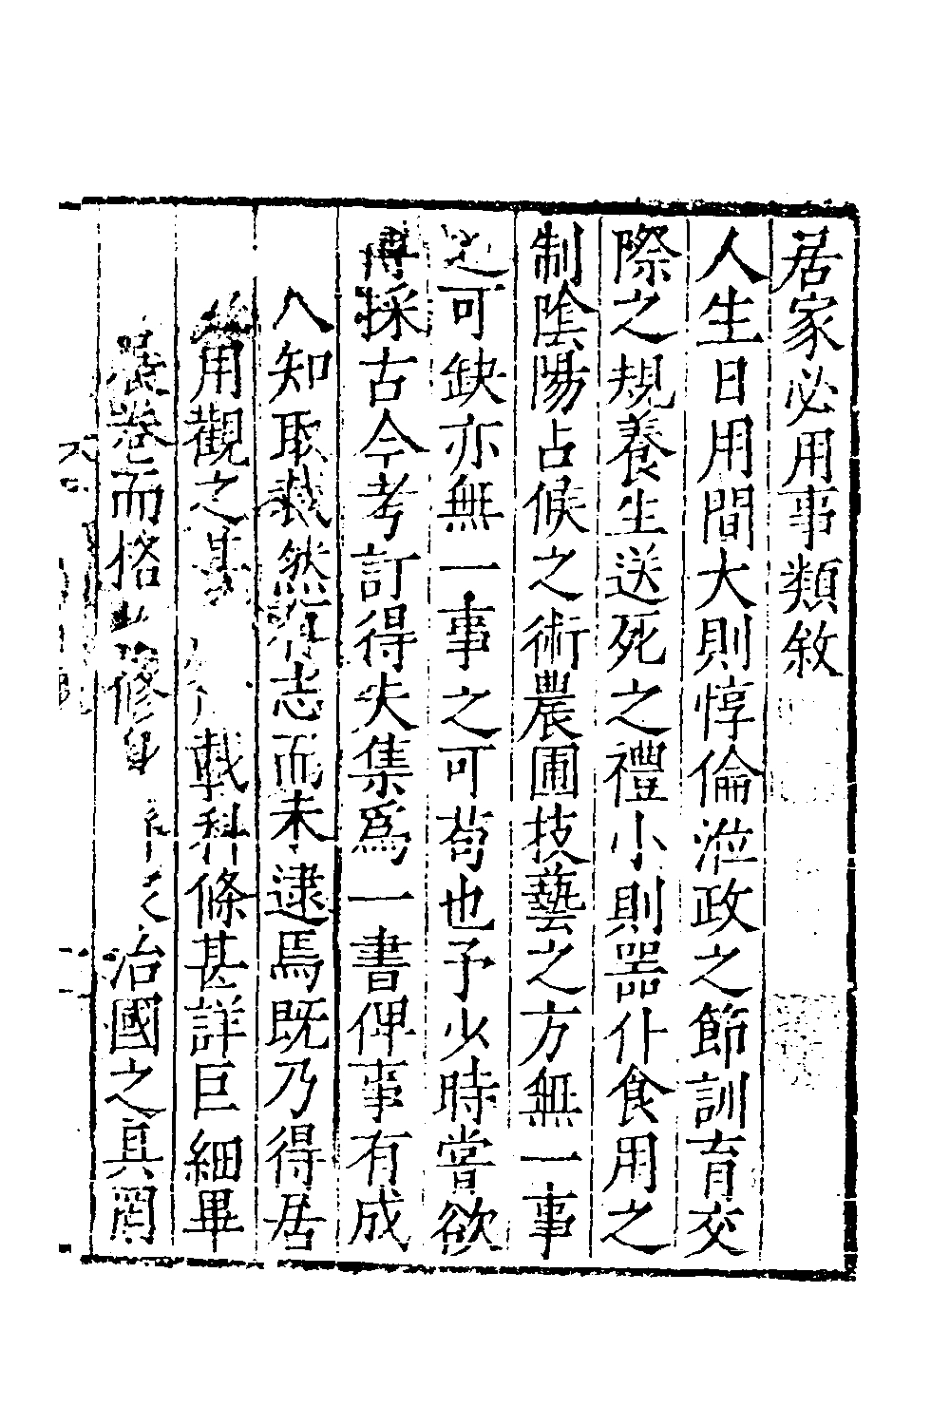 居家必用事類敘
人生日用間大則惇倫涖政之節訓育交
際之規養生送死之禮小則器什食用之
制陰陽占候之術農圃技藝之方無一事
之可缺亦無一事之可苟也予少時嘗欲
博採古今考訂得失集爲一書俾事有成
人知取裁然有志而未逮焉既乃得居
用觀之其載科條甚詳巨細畢
展卷而格修身治國之具罔